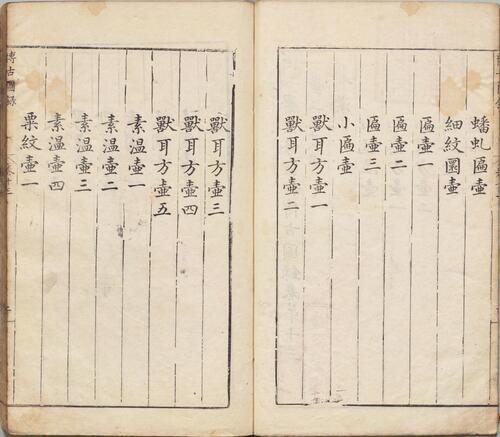 蟠虬匾壺
細紋圜壺
匾壺一
匾壺二
匾壺三
小匾壺
獸耳方壺一
獸耳方壺二
獸耳方壺三
獸耳方壺四
獸耳方壺五
素温壺一
素温壺二
素温壺三
素温壺四
粟紋壺一
博古圖録